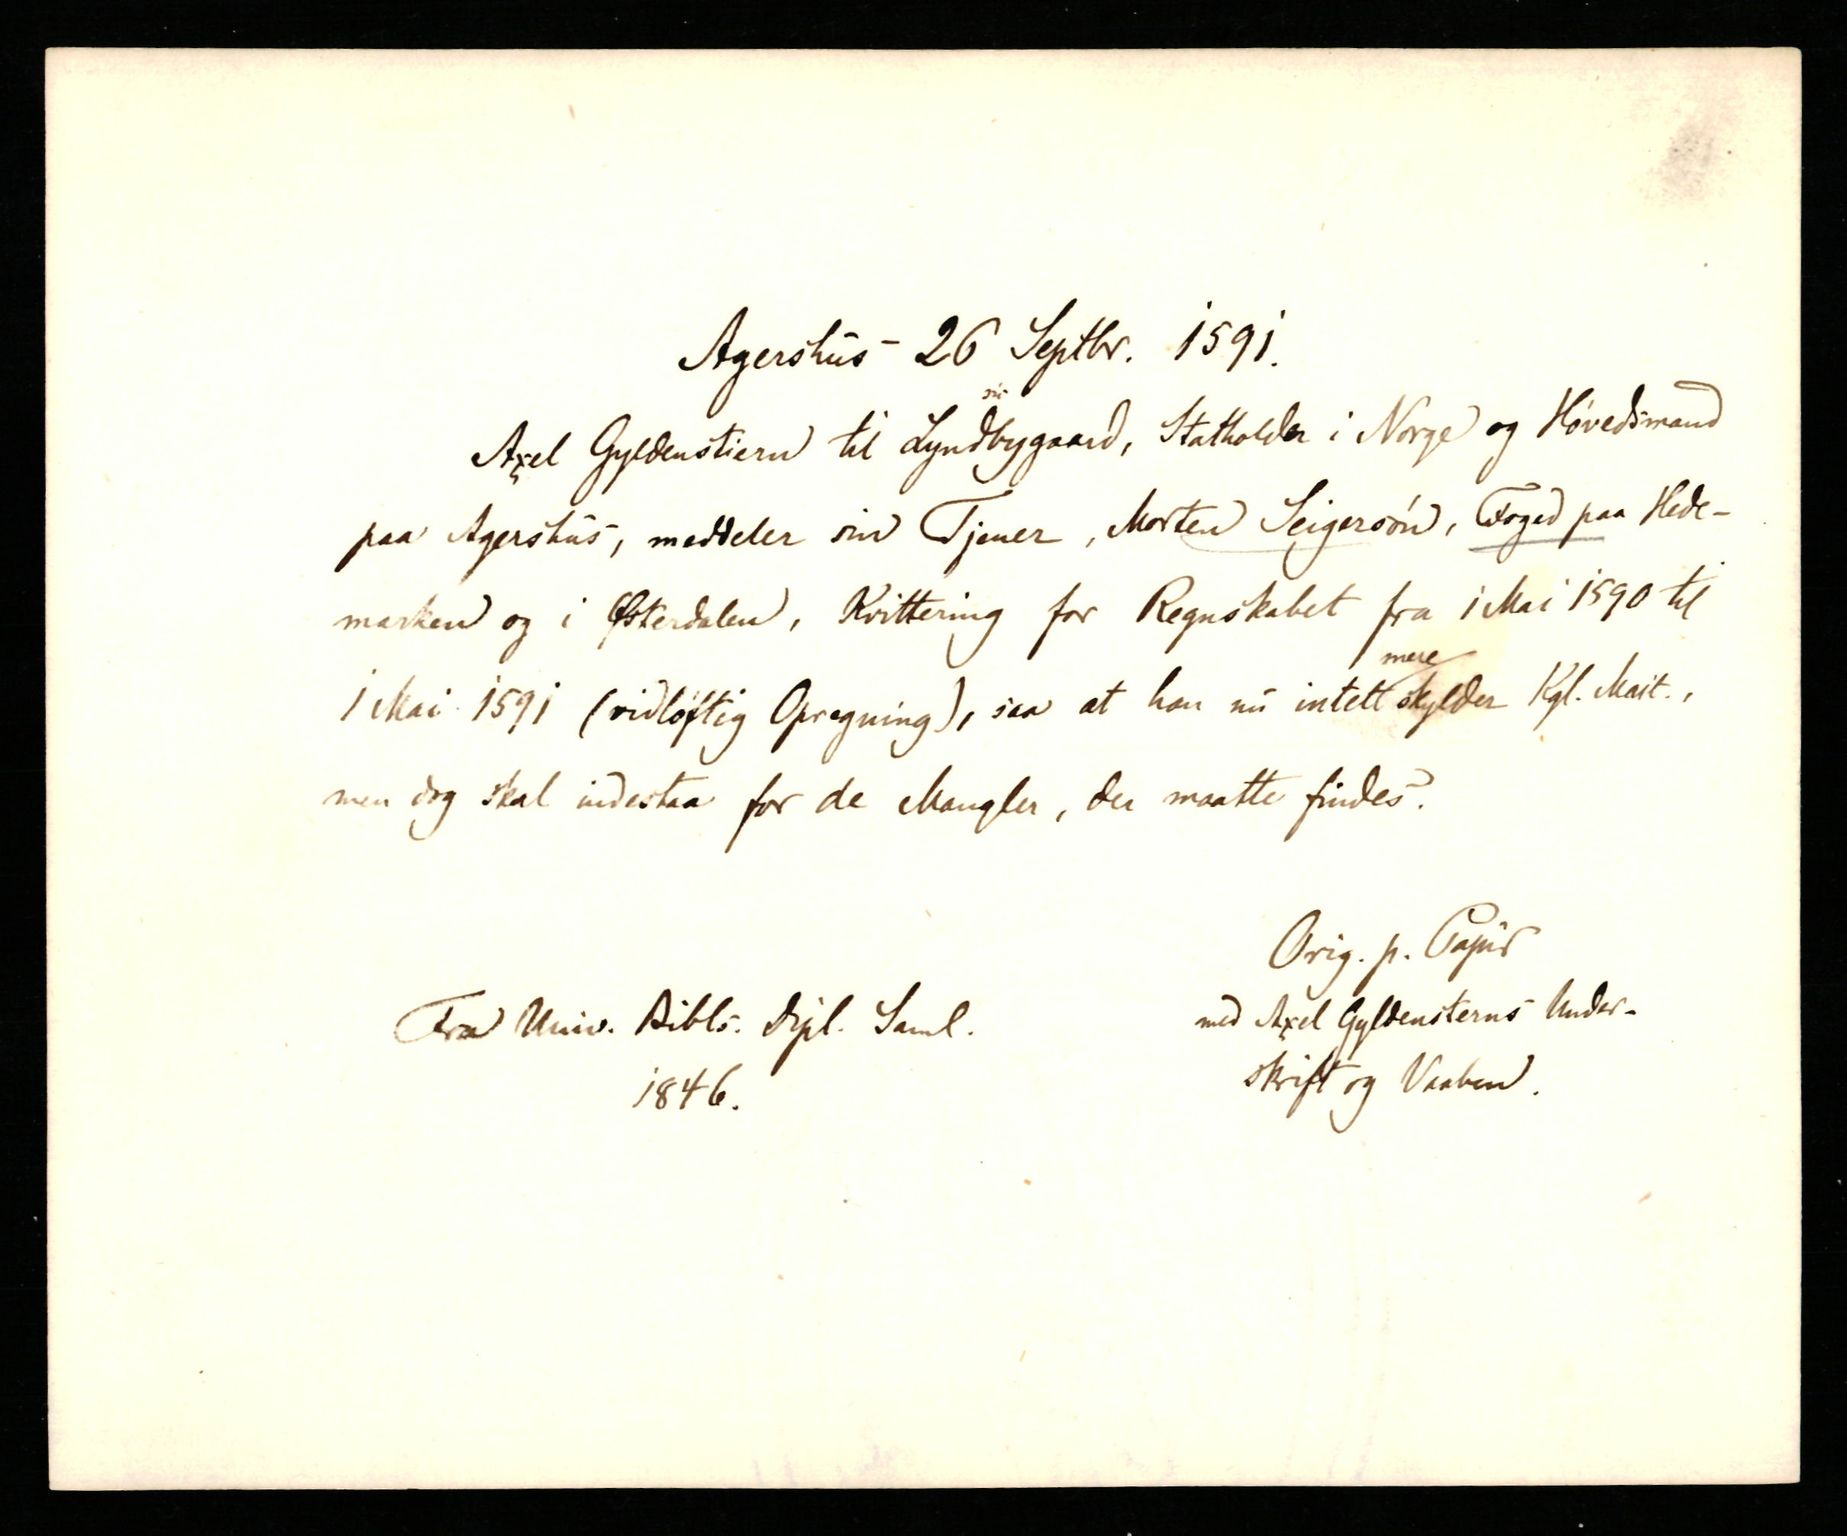 Agershus 26 Septbr. 1591.
Axel Gyldenstiern til Lyndbygaard, Statholder i Norge og Høvedsmand
paa Agershus, meddeler sin Tjener, Morten Seigersøn, Foged paa Hede-
marken og i Østerdalen, Kvittering for Regnskabet fra 1 Mai 1590 til
1 Mai 1591 (vidløftig Opregning), saa at han nu intet mere skylder Kgl. Mait.,
men dog skal indestaa for de Mangler, der maatte findes.
Orig. p. Papir
med Axel Gyldensterns Under-
skrift og Vaaben.
Fra Univ. Bibls. Dipl. Saml.
1846.